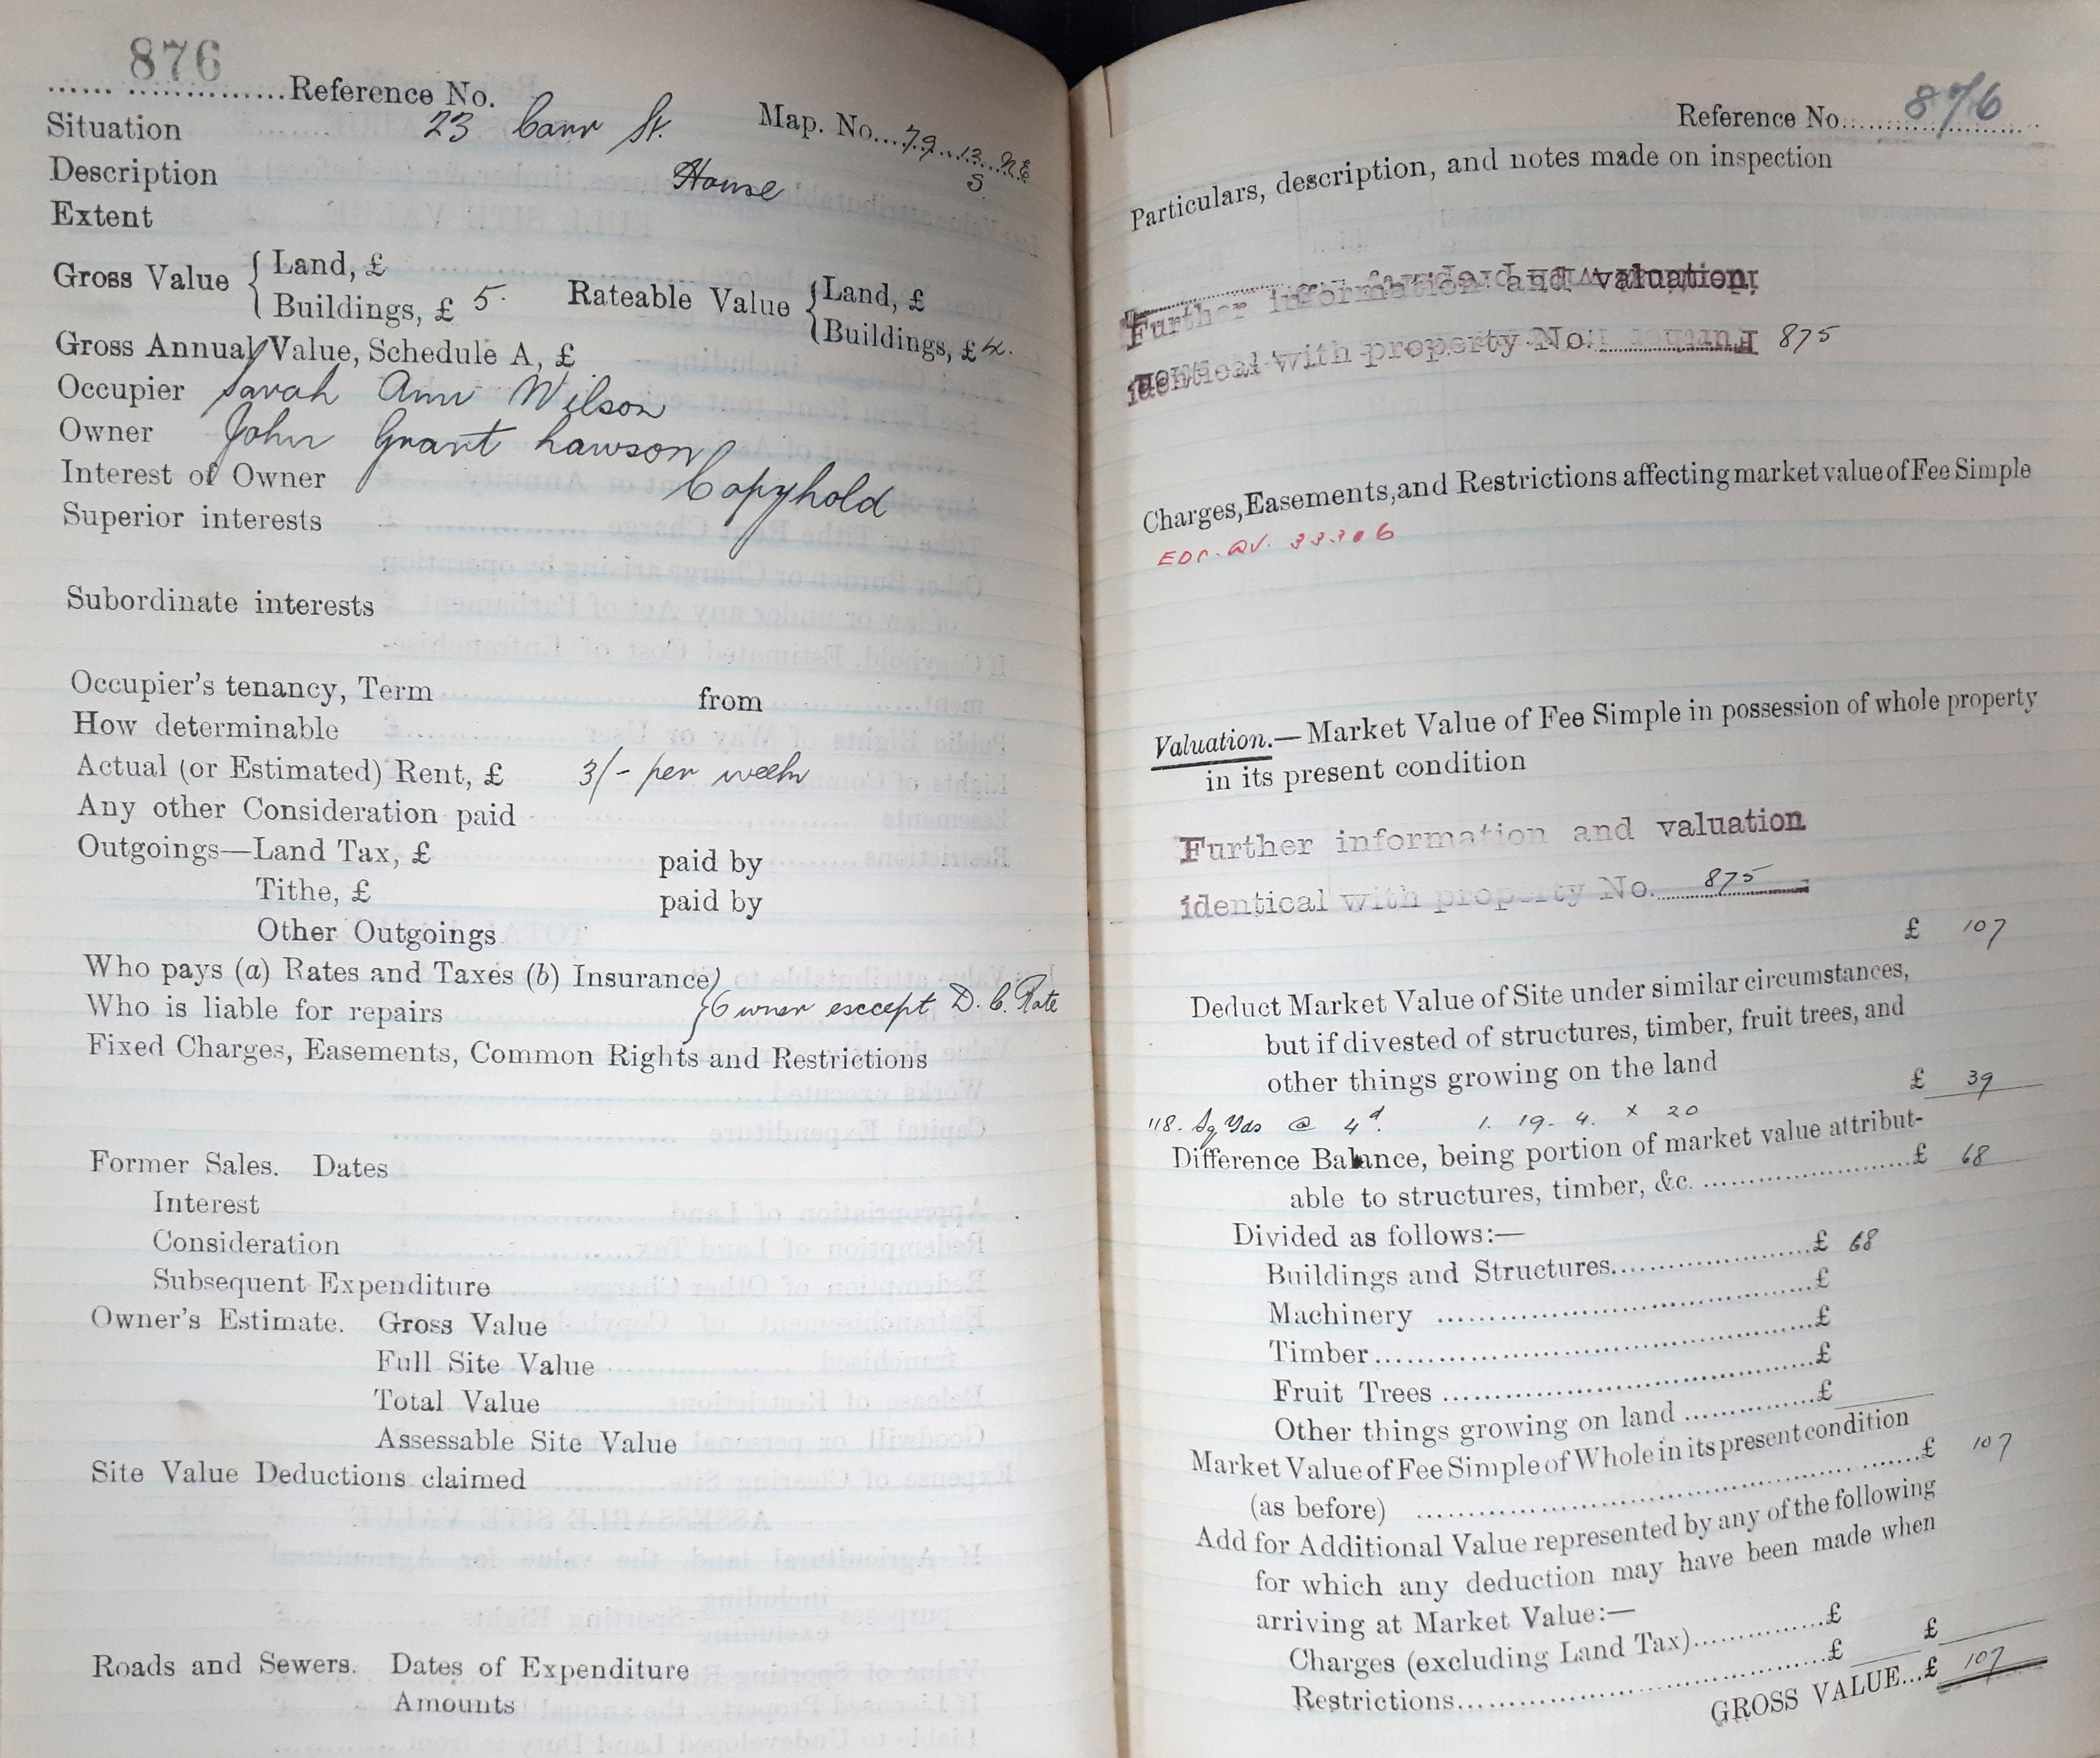 876
Reference No.
Situation 23 Carr St. Map. No. 79 13 NE
5
Description House
Extent
Gross Value { Land, £
Buildings, £ 5. Rateable Value { Land, £
Buildings, £ 4.
Gross Annual Value, Schedule A, £
Occupier Sarah Ann Wilson
Owner John Grant Lawson
Interest of Owner Copyhold
Superior interests
Subordinate interests
Occupier's tenancy, Term from
How determinable
Actual (or Estimated) Rent, £ 3/- per week
Any other Consideration paid
Outgoings—Land Tax, £ paid by
Tithe, £ paid by
Other Outgoings
Who pays (a) Rates and Taxes (b) Insurance
Who is liable for repairs } Owner except D. C. Rate
Fixed Charges, Easements, Common Rights and Restrictions
Former Sales. Dates
Interest
Consideration
Subsequent Expenditure
Owner's Estimate. Gross Value
Full Site Value
Total Value
Assessable Site Value
Site Value Deductions claimed
Roads and Sewers. Dates of Expenditure
Amounts
Reference No. 876
Particulars, description, and notes made on inspection
Further information and valuation
identical with property No. 875
Charges, Easements, and Restrictions affecting market value of Fee Simple
Valuation.—Market Value of Fee Simple in possession of whole property
in its present condition
Further information and valuation
identical with property No. 875
£ 107
Deduct Market Value of Site under similar circumstances,
but if divested of structures, timber, fruit trees, and
other things growing on the land
£ 39
118. Sq Yds @ 4d. 1. 19. 4. x 20
Difference Balance, being portion of market value attribut-
able to structures, timber, &c. £ 68
Divided as follows:—
Buildings and Structures £ 68
Machinery £
Timber £
Fruit Trees £
Other things growing on land £
Market Value of Fee Simple of Whole in its present condition
(as before) £ 107
Add for Additional Value represented by any of the following
for which any deduction may have been made when
arriving at Market Value:—
Charges (excluding Land Tax) £
Restrictions £ £
GROSS VALUE...£ 107